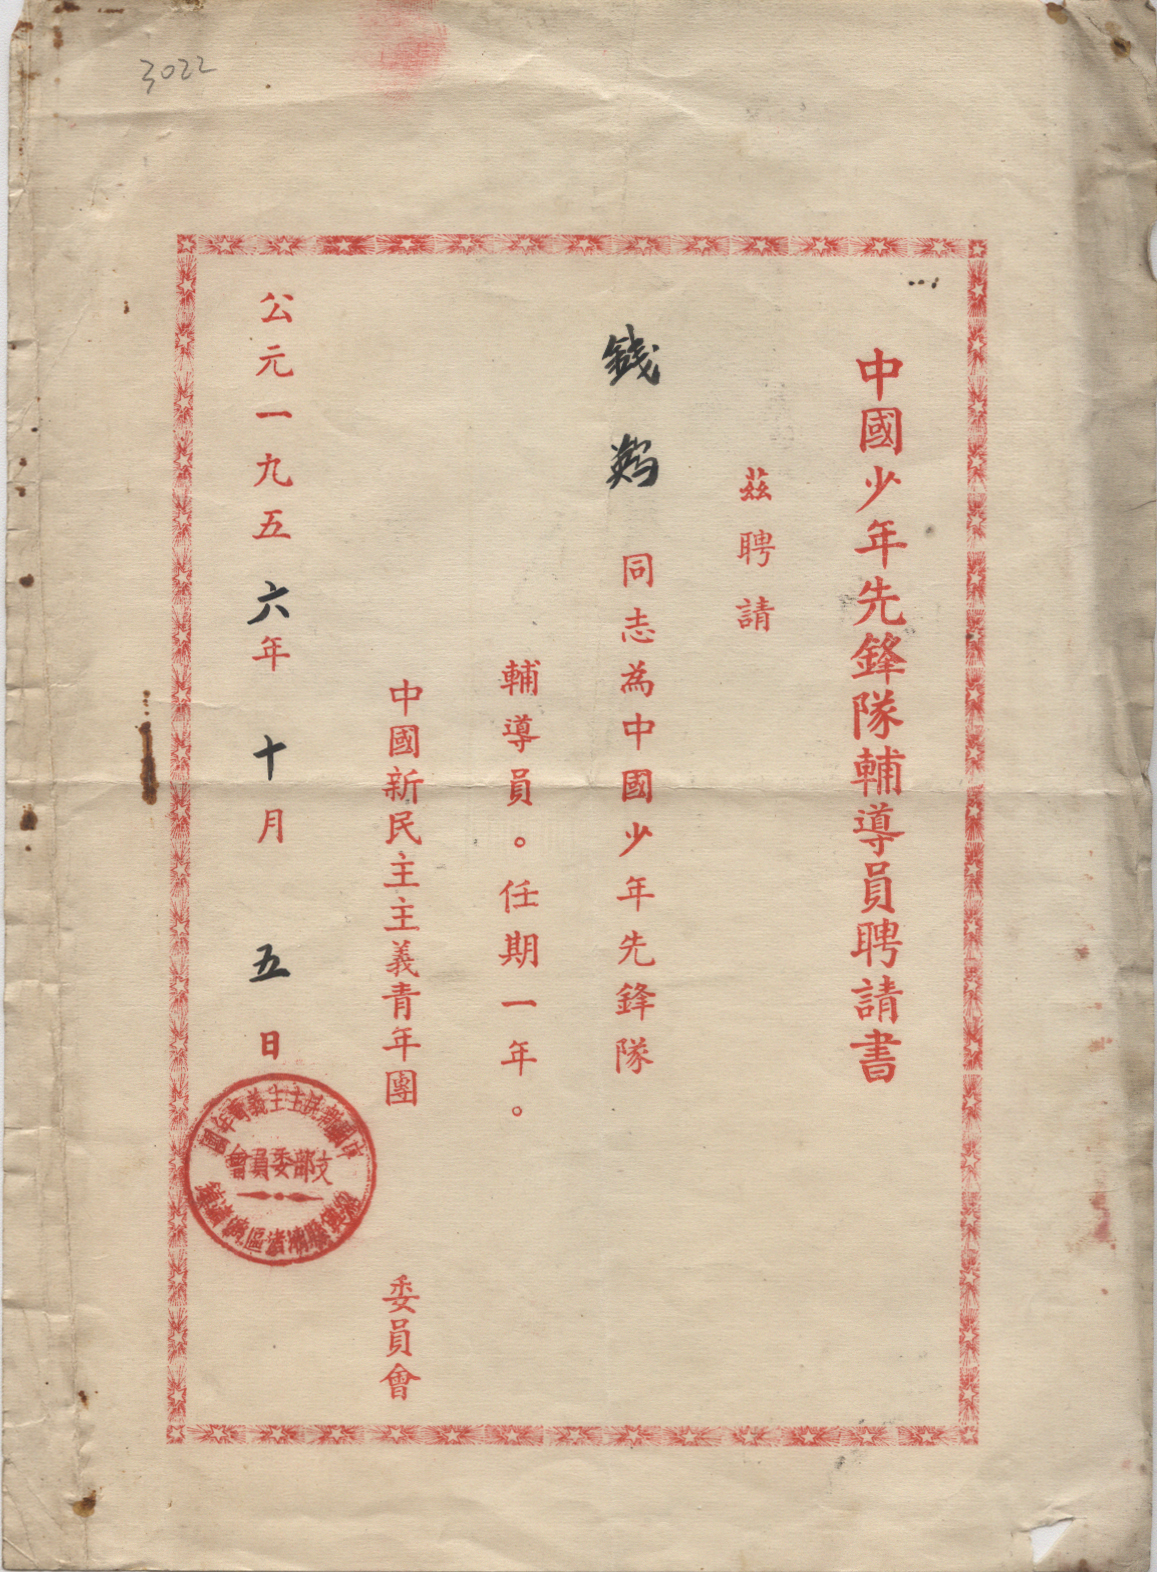 3022
中國少年先鋒隊輔導員聘請書
茲聘請
錢
同志為中國少年先鋒隊
輔導員。任期一年。
中國新民主主義青年團
委員會
公元一九五六年十月五日
中國新民主主義青年團
支部委員會